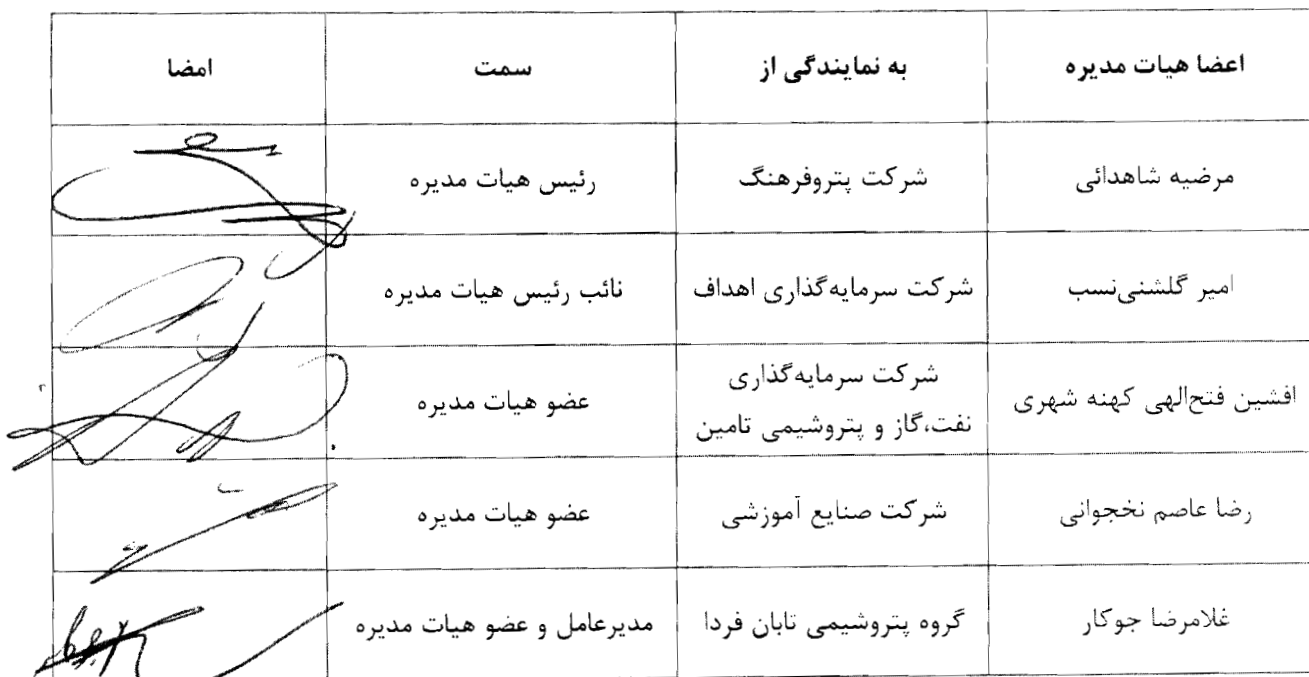 اعضا هیات مدیره به نمایندگی از سمت امضا
مرضیه شاهدائی شرکت پتروفرهنگ رئیس هیات مدیره
امیر گلشنی‌نسب شرکت سرمایه‌گذاری اهداف نائب رئیس هیات مدیره
افشین فتح‌الهی کهنه شهری شرکت سرمایه‌گذاری
نفت،گاز و پتروشیمی تامین عضو هیات مدیره
رضا عاصم نخجوانی شرکت صنایع آموزشی عضو هیات مدیره
غلامرضا جوکار گروه پتروشیمی تابان فردا مدیرعامل و عضو هیات مدیره